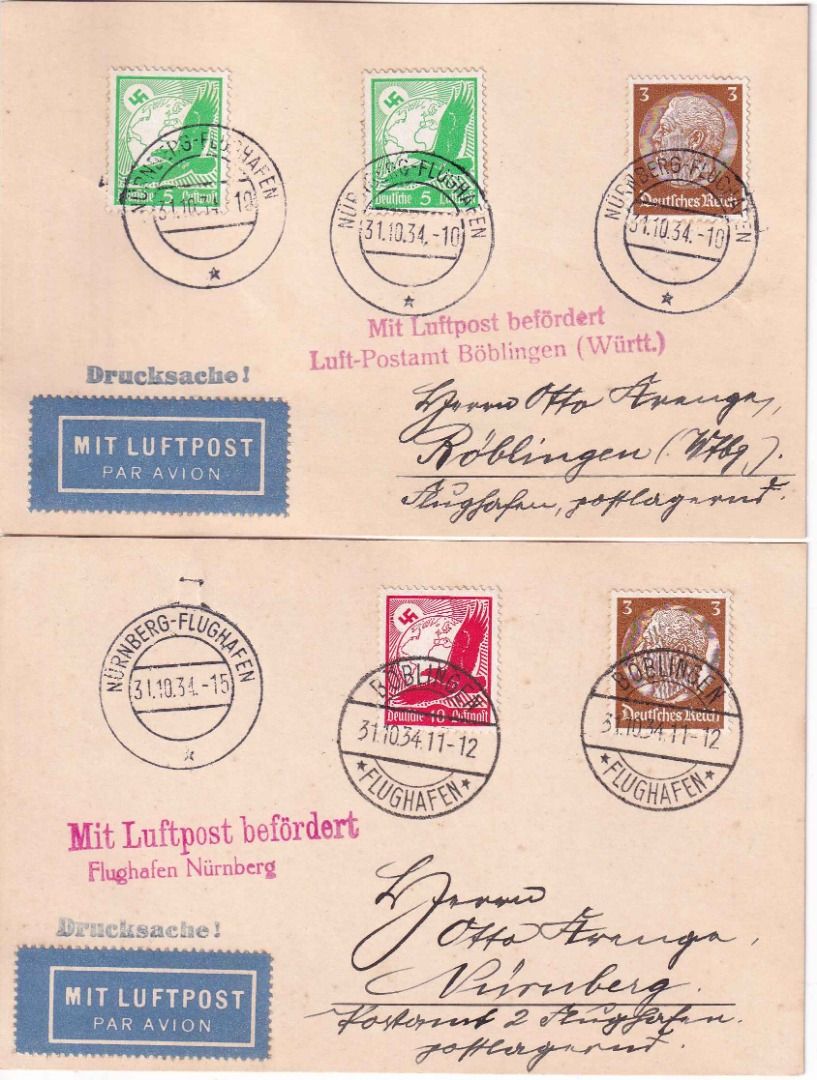 5
Deutsche 5 Luftpost
NÜRNBERG-FLUGHAFEN
31.10.34.-10
5
Deutsche 5 Luftpost
NÜRNBERG-FLUGHAFEN
31.10.34.-10
3 3
Deutsches Reich
NÜRNBERG-FLUGHAFEN
31.10.34.-10
Mit Luftpost befördert
Luft-Postamt Böblingen (Württ.)
Drucksache!
MIT LUFTPOST
PAR AVION
Herrn Otto
Böblingen (Wtbg.).
Flughafen, postlagernd.
NÜRNBERG-FLUGHAFEN
31.10.34.-15
Deutsche 10 Luftpost
BÖBLINGEN
31.10.34.11-12
FLUGHAFEN
3 3
Deutsches Reich
BÖBLINGEN
31.10.34.11-12
FLUGHAFEN
Mit Luftpost befördert
Flughafen Nürnberg
Drucksache!
MIT LUFTPOST
PAR AVION
Herrn
Otto
Nürnberg.
Postamt 2 Flughafen.
postlagernd.